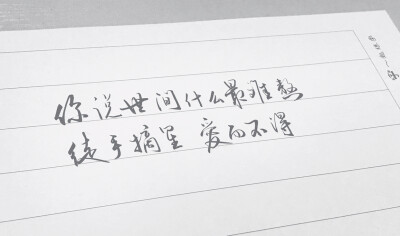 你说世间什么最难熬
徒手摘星 爱而不得